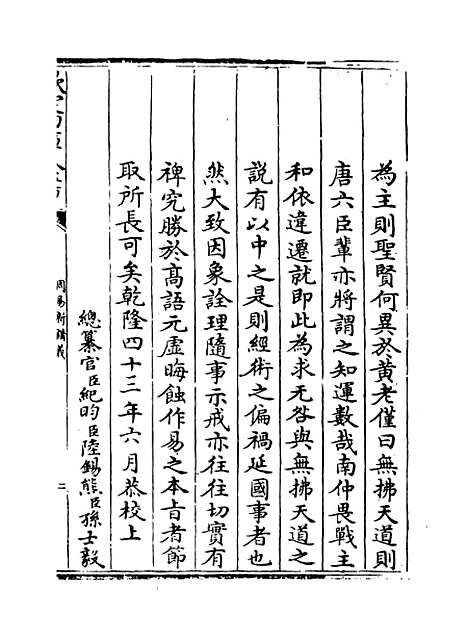 為主則聖賢何異於黄老僅曰無拂天道則
唐六臣輩亦將謂之知運數哉南仲畏戰主
和依違遷就即此為求无咎與無拂天道之
説有以中之是則經術之偏禍延國事者也
然大致因象詮理隨事示戒亦往往切實有
裨究勝於高語元虛晦蝕作易之本㫖者節
取所長可矣乾隆四十三年六月恭校上
總纂官臣紀昀臣陸錫熊臣孫士毅
欽定四庫全書
周易新講義
二